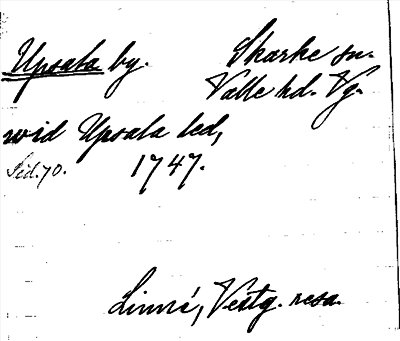 Upsala by. Skarke sn.
Valle hd. Vg.
wid Upsala led,
Sid. 70. 1747.
Linné, Vestg. resa.